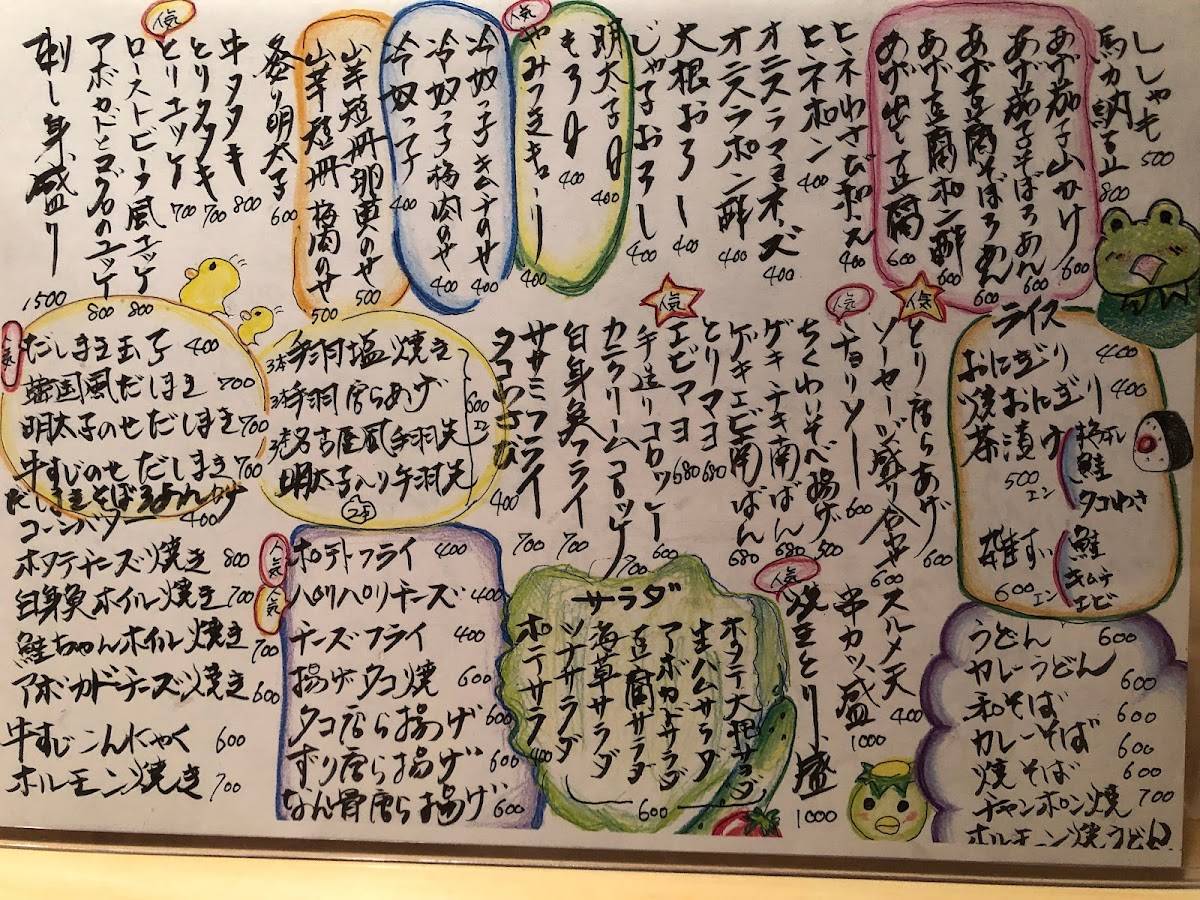 ししゃも 500
馬カツ納豆 800
あげ茄子山かけ 600
あげ茄子そばろあん 600
あげ豆腐そぼろあん 600
あげ豆腐ポン酢 600
あげ出し豆腐 600
ヒネわさび和え 400
ヒネポン 400
オニスラマヨネーズ 400
オニスラポン酢 400
大根おろし 400
じゃこおろし 400
明太子
もろきゅう 400
人気
やみつきキューリ 400
冷奴っ子キムチのせ 400
冷奴っ子梅肉のせ 400
冷奴っ子 400
山芋短冊卵黄のせ 500
山芋短冊梅肉のせ 500
炙り明太子 600
牛タタキ 800
とりタタキ 700
人気
とりユッケ 700
ローストビーフ風ユッケ 800
アボカドとマグロのユッケ 800
刺し身盛り 1500
ライス
おにぎり 400
焼おにぎり 400
茶漬け 500エン
梅干し
鮭
タコわさ
雑すい 600エン
鮭
キムチ
エビ
人気
とり唐らあげ 600
ソーセージ盛り合せ 600
人気
チョリソー 600
ちくわいそべ揚げ 500
ゲキチキ南ばん 680
ゲキエビ南ばん 680
とりマヨ 680
人気
エビマヨ 680
手造りコロッケー 600
カニクリームコロッケ 700
白身魚フライ 700
ササミフライ 700
タコわさび 400
手羽塩焼き 3本
手羽唐らあげ 3本
名古屋風手羽先 3本
明太子入り手羽先 2本
600エン
人気
だしまき玉子 400
韓国風だしまき 700
明太子のせだしまき 700
牛すじのせだしまき 700
だしまきそばろあんかけ
コーンバター 400
ホタテチーズ焼き 800
白身魚ホイル焼き 700
鮭ちゃんホイル焼き 700
アボカドチーズ焼き 600
牛すじこんにゃく 600
ホルモン焼き 700
人気
ポテトフライ 400
人気
パリパリチーズ 400
チーズフライ 400
揚げタコ焼 600
タコ唐ら揚げ 600
ずり唐ら揚げ 600
なん骨唐ら揚げ 600
サラダ
ホタテ大根サラダ
生ハムサラダ
アボカドサラダ
豆腐サラダ
海草サラダ
ツナサラダ
600
ポテサラ 400
スルメ天 400
串カツ盛 1000
人気
焼きとり盛 1000
うどん 600
カレーうどん 600
和そば 600
カレーそば 600
焼そば 600
チャンポン焼 700
ホルモン焼うどん